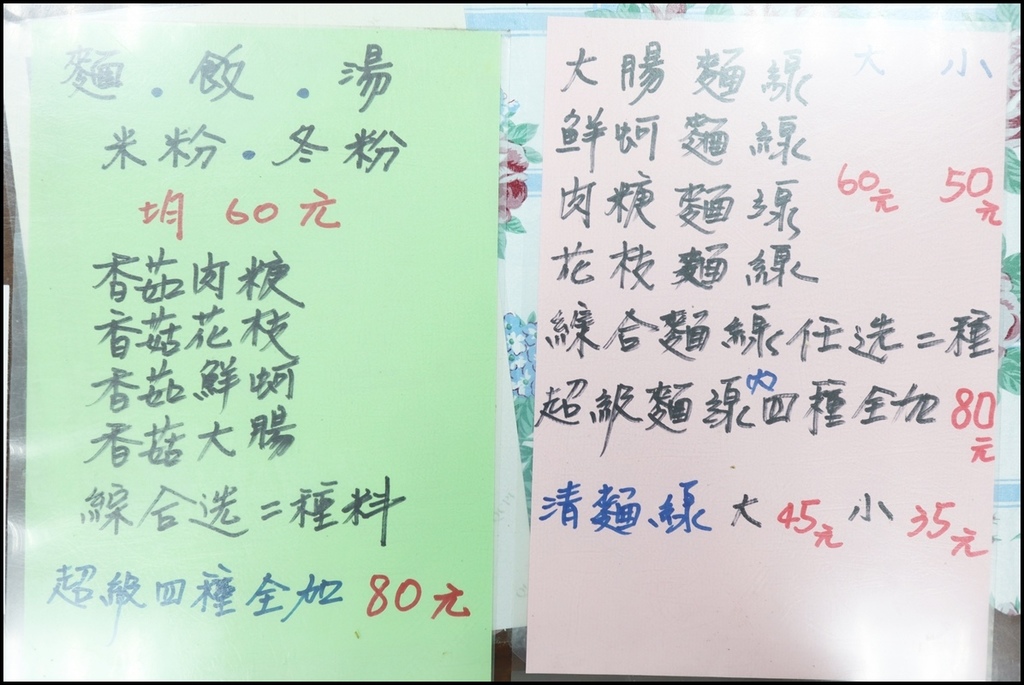 麵.飯.湯
米粉.冬粉
均 60元
香菇肉糠
香菇花枝
香菇鮮蚵
香菇大腸
綜合选二種料
超級四種全加 80元
大腸麵線 大 小
鮮蚵麵線
肉糠麵線 60元 50元
花枝麵線
綜合麵線任选二種
超級麵線內四種全加 80元
清麵線 大 45元 小 35元